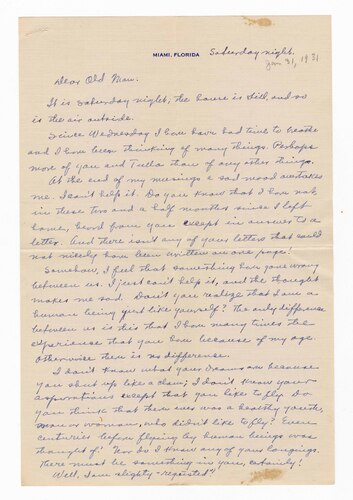 MIAMI, FLORIDA
Saturday night.
Jan 31, 1931
Dear Old Man.
It is Saturday night, the house is still, and so
is the air outside.
Since Wednesday I have had time to breathe
and I have been thinking of many things. Perhaps
more of you and than of any other things.
At the end of my musings a sad mood overtakes
me. I can't help it. Do you know that I have not
in these two and a half months since I left
home, heard from you except in answer to a
letter. And there isn't any of your letters that could
not nicely have been written on one page!
Somehow, I feel that something has gone wrong
between us. I just can't help it, and the thought
makes me sad. Don't you realize that I am a
human being just like yourself? The only difference
between us is this that I have many times the
experience that you have because of my age.
Otherwise there is no difference.
I don't know what your dreams are because
you shut up like a clam; I don't know your
aspirations except that you like to fly. Do
you think that there ever was a healthy youth,
man or woman, who didn't like to fly? Even
centuries before flying by human beings was
thought of! Nor do I know any of your longings.
There must be something in you, certainly!
Well, I am slightly "rejected"!